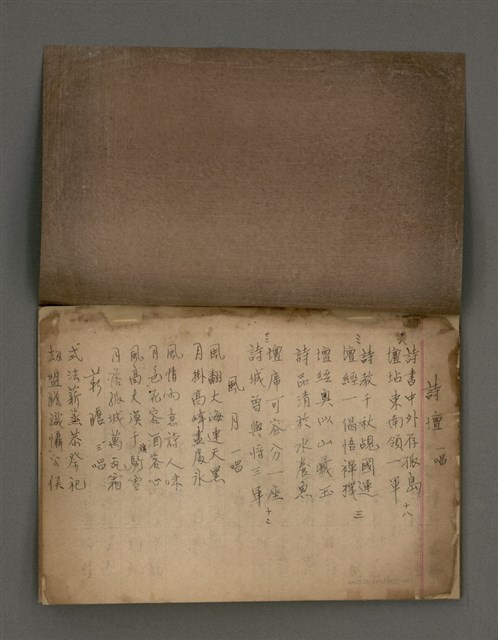 詩壇 一唱
詩書中外存孤島 十八
壇坫東南領一軍
詩教千秋觇國運 三
壇經一偈悟禪機
詩品清於水養魚
壇經奧以山藏玉
壇席可容分一座 十二
詩城曾與悟三軍
風月 一唱
風翻大海連天黑
月掛高峰
風情向客詩人味
月色 客酒客心
風高大漠千騎雪
月落孤城萬瓦霜
薪膽 三唱
式法薪蒸恭祭祀
胡盟膽 懾公侯